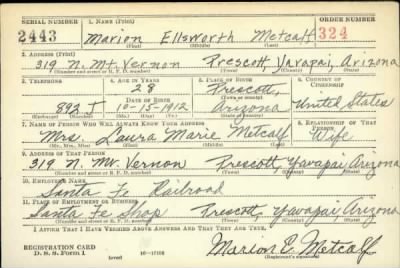 SERIAL NUMBER 1. NAME (Print) ORDER NUMBER
2443 Marion Ellsworth Metcalf 324
(First) (Middle) (Last)
2. ADDRESS (Print)
319 N. Mt. Vernon Prescott, Yavapai, Arizona
(Number and street or R. F. D. number) (Town) (County) (State)
3. TELEPHONE 4. AGE IN YEARS 5. PLACE OF BIRTH 6. COUNTRY OF CITIZENSHIP
28 Prescott,
DATE OF BIRTH (Town or county)
892 J 10-15-1912 Arizona United States
(Exchange) (Number) (Mo.) (Day) (Yr.) (State or country)
7. NAME OF PERSON WHO WILL ALWAYS KNOW YOUR ADDRESS 8. RELATIONSHIP OF THAT PERSON
Mrs. Laura Marie Metcalf Wife
(Mr., Mrs., Miss) (First) (Middle) (Last)
9. ADDRESS OF THAT PERSON
319 N. Mt. Vernon Prescott, Yavapai Arizona
(Number and street or R. F. D. number) (Town) (County) (State)
10. EMPLOYER'S NAME
Santa Fe Railroad
11. PLACE OF EMPLOYMENT OR BUSINESS
Santa Fe Shop Prescott, Yavapai Arizona
(Number and street or R. F. D. number) (Town) (County) (State)
I AFFIRM THAT I HAVE VERIFIED ABOVE ANSWERS AND THAT THEY ARE TRUE.
REGISTRATION CARD
D. S. S. Form 1 (over) 16-17105 Marion E. Metcalf
(Registrant's signature)